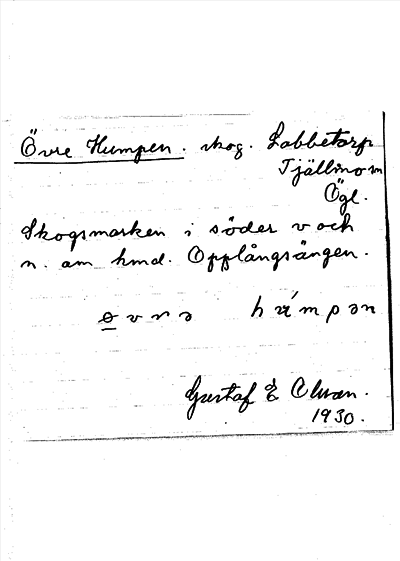 Övre Humpen. skog. Labbetorp
Tjällmo sn
Ögl.
Skogsmarken i söder v och
n. om hmd. Opplångsängen.
ɵvrə húmpən
Gustaf E
1930.